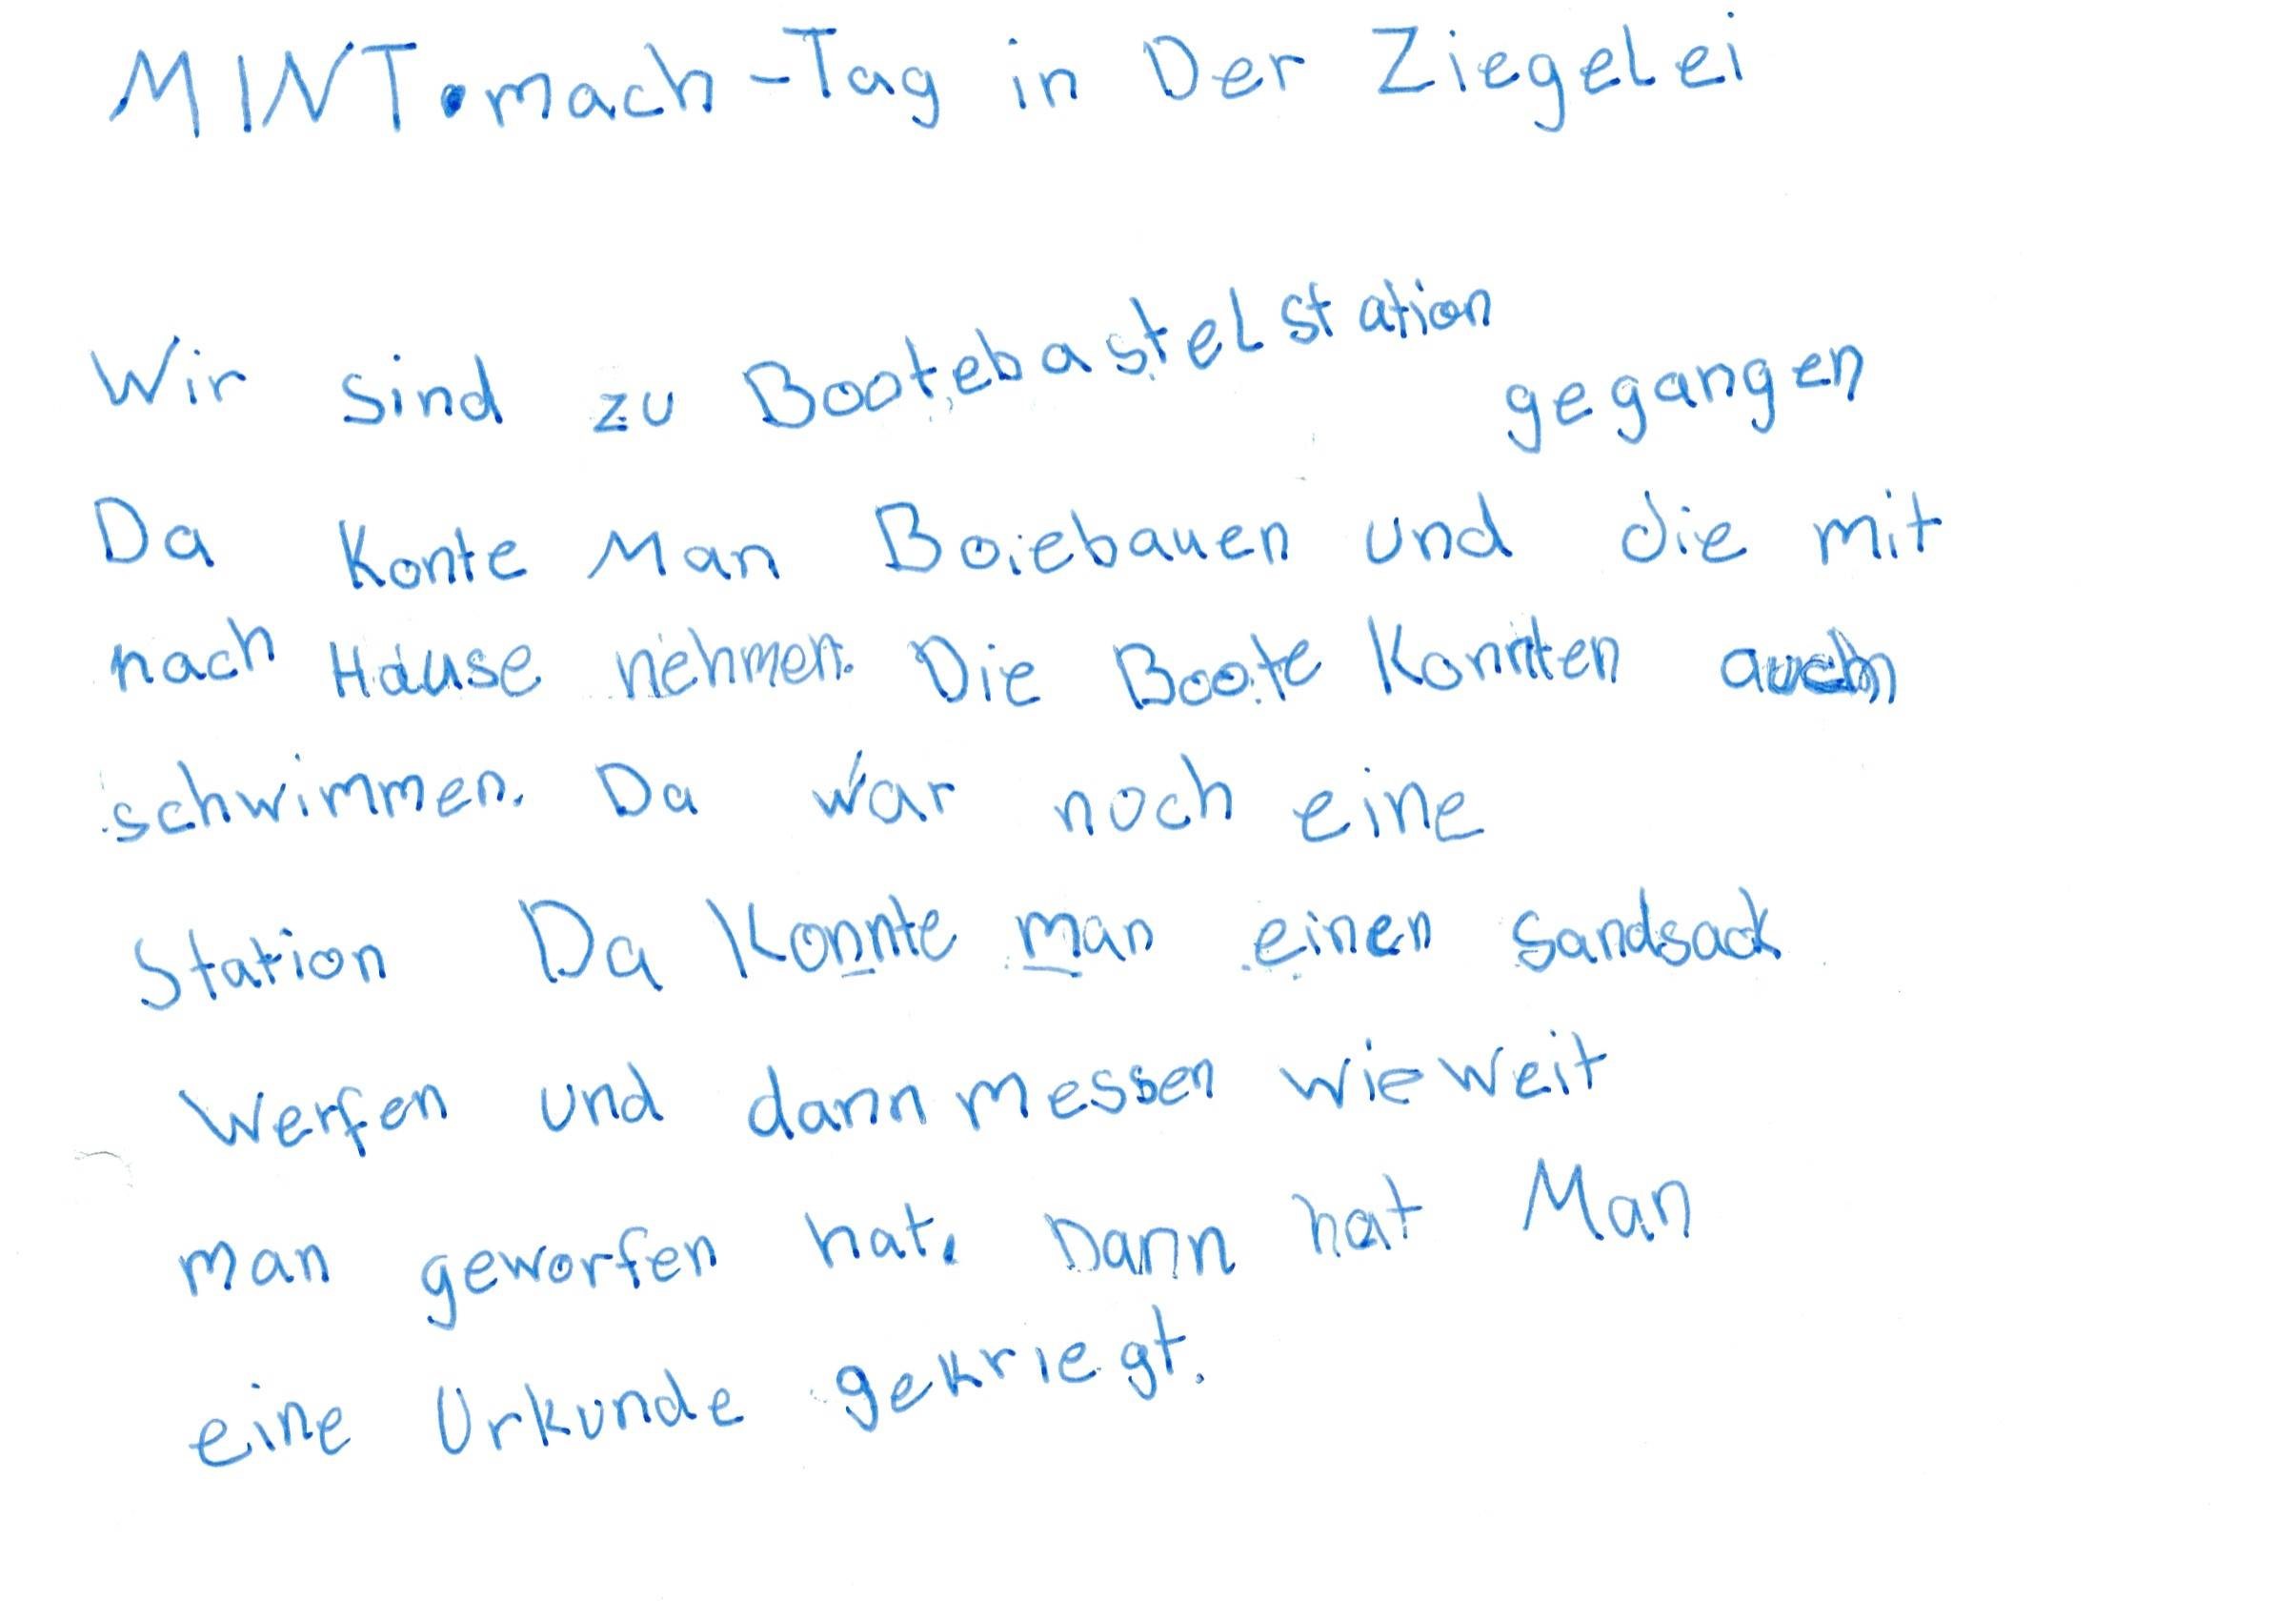 MINT•mach-Tag in Der Ziegelei
Wir sind zu Bootebastelstation gegangen
Da Konte Man Boiebauen und die mit
nach Hause nehmen. Die Boote Konnten auch
schwimmen. Da war noch eine
Station Da Konnte man einen Sandsack
Werfen und dann messen wie weit
man geworfen hat. Dann hat Man
eine Urkunde gekriegt.